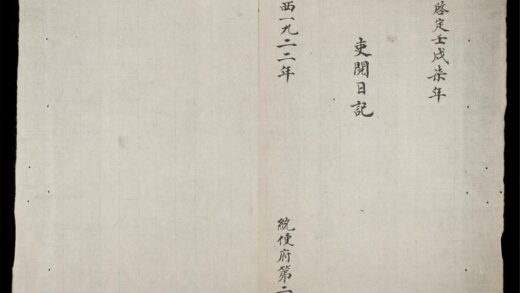 啓定壬戌柒年
吏閱日記
西一九二二年
統使府第二